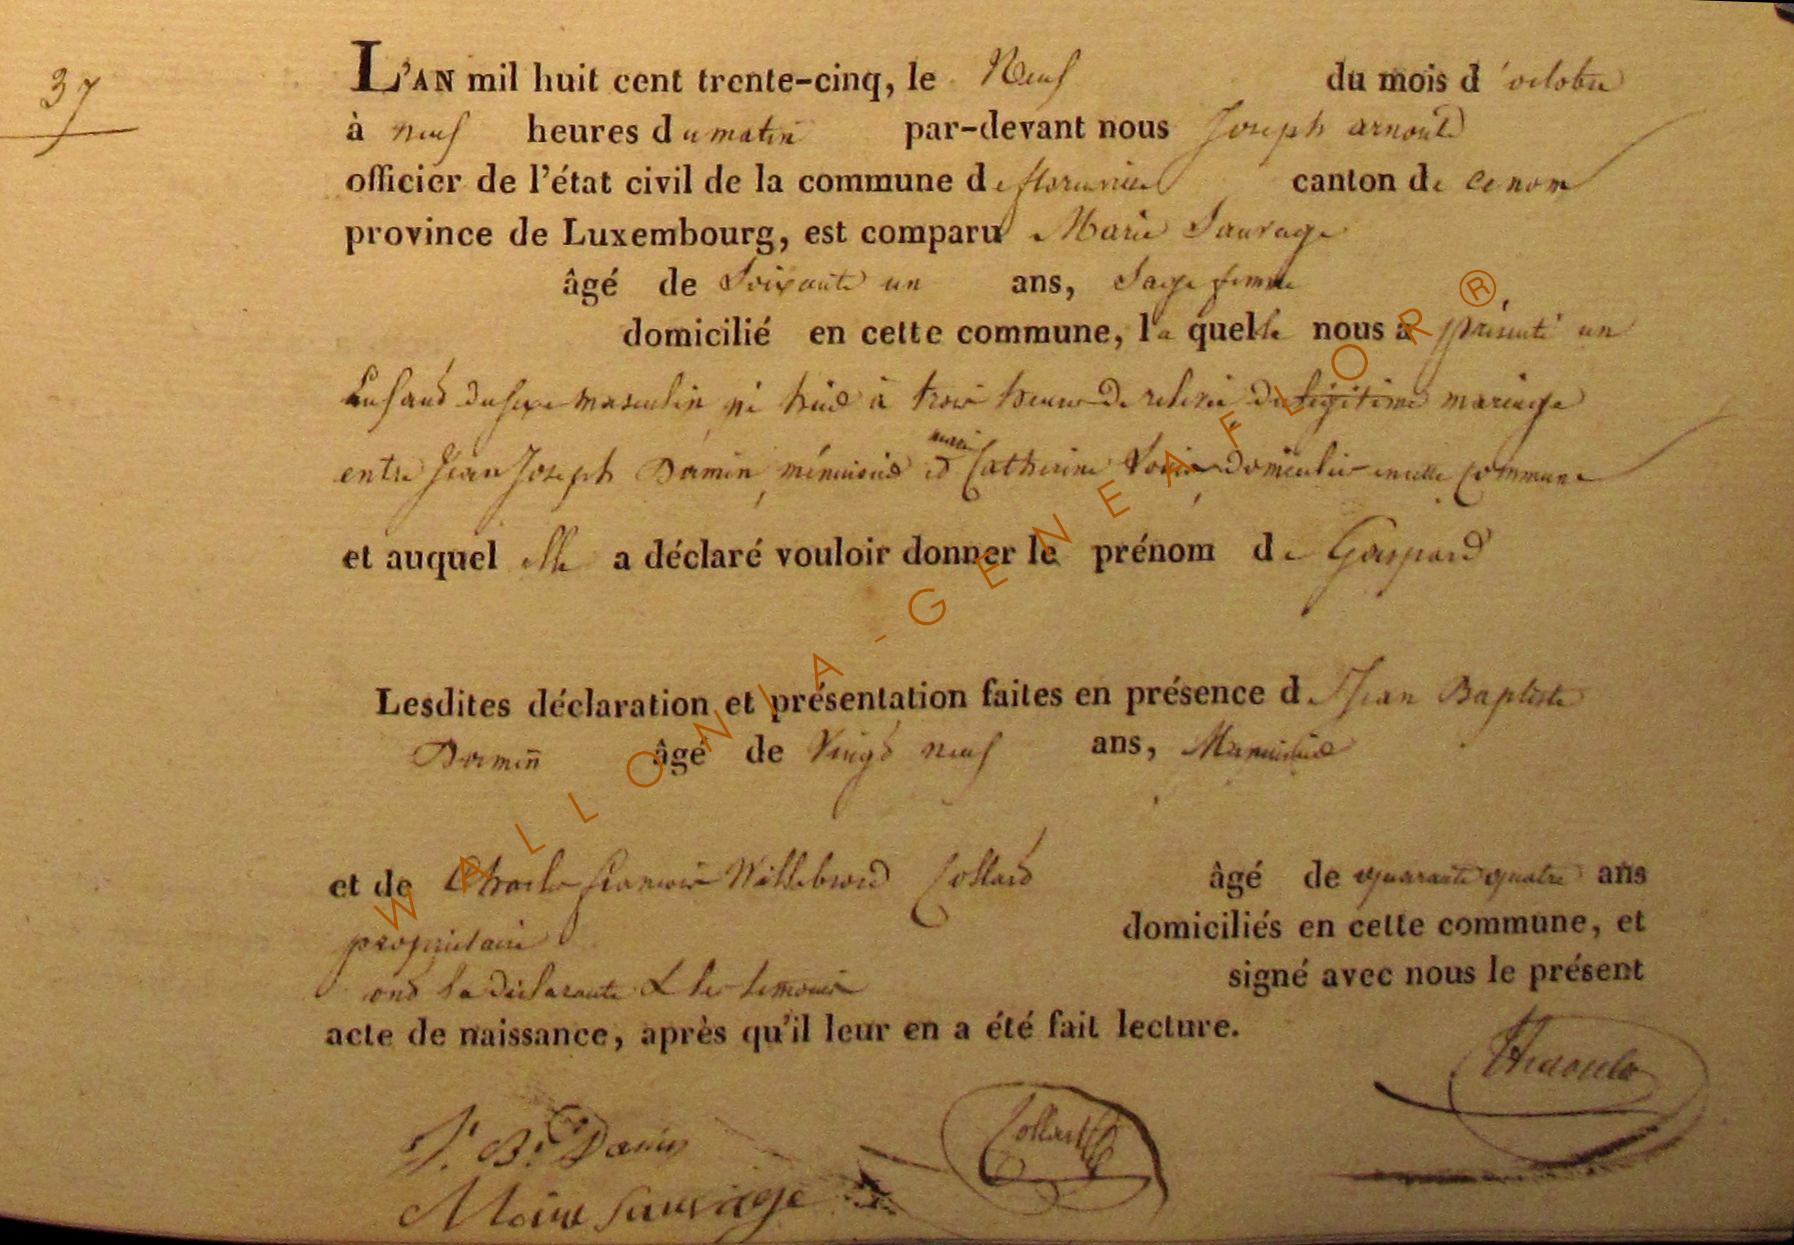 37
L'AN mil huit cent trente-cinq, le Neuf du mois d'octobre
à neuf heures du matin par-devant nous Joseph arnould
officier de l'état civil de la commune de florenville canton de ce nom
province de Luxembourg, est comparu Marie Sauvage
âgé de Soixante un ans, Sage femme
domicilié en cette commune, laquelle nous a présenté un
Enfand du sexe masculin né hier à trois heures de relevée du légitime mariage
entre Jean Joseph Darmin, ménuisier et marie Catherine domiciliés en cette commune
et auquel elle a déclaré vouloir donner le prénom de Gaspard
Lesdites déclaration et présentation faites en présence de Jean Baptiste
Darmin âgé de Vingt neuf ans, Menuisier
et de Charles francois Willebrord Collard âgé de quarante quatre ans
propriétaire domiciliés en cette commune, et
ond la déclarante & les temoins signé avec nous le présent
acte de naissance, après qu'il leur en a été fait lecture.
J. B. Darmin Collard
Marie Sauvage
WALLONIA-GENEAFLOR®